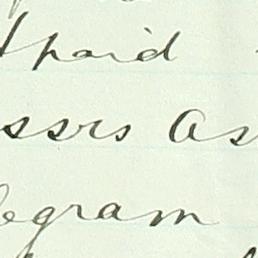 paid
ssrs As
egram